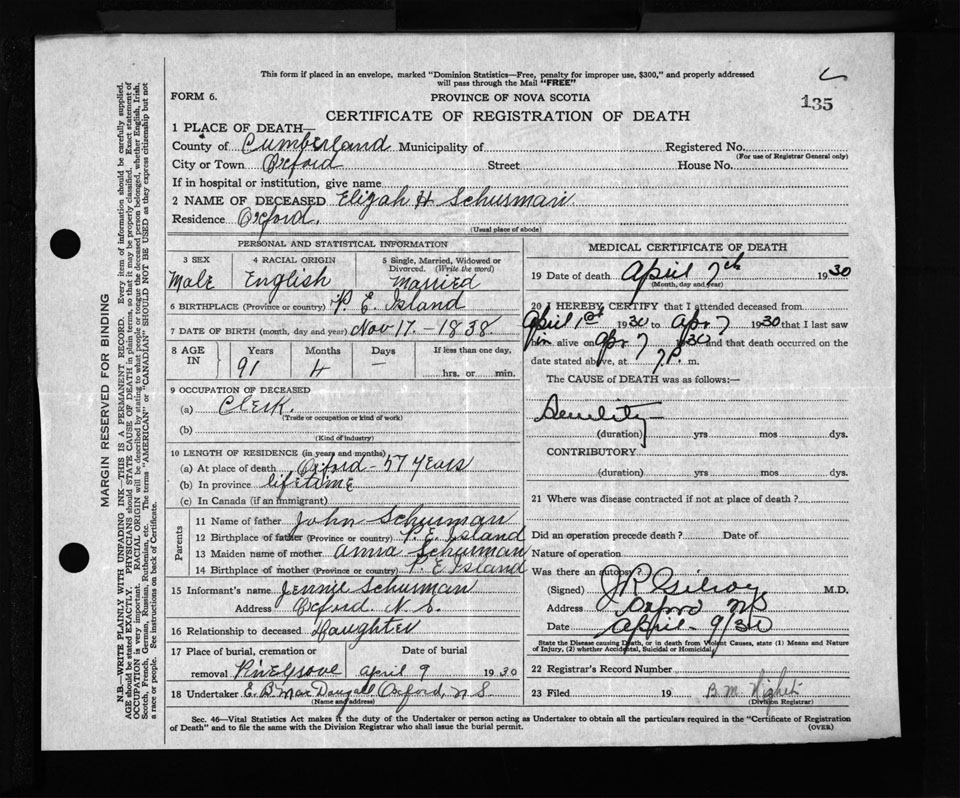 This form if placed in an envelope, marked "Dominion Statistics—Free, penalty for improper use, $300," and properly addressed
will pass through the Mail "FREE"
FORM 6.
PROVINCE OF NOVA SCOTIA
135
CERTIFICATE OF REGISTRATION OF DEATH
1 PLACE OF DEATH—
County of Cumberland Municipality of Registered No.
(For use of Registrar General only)
City or Town Oxford Street House No.
If in hospital or institution, give name
2 NAME OF DECEASED Elijah H Schurman
Residence Oxford.
(Usual place of abode)
PERSONAL AND STATISTICAL INFORMATION
3 SEX 4 RACIAL ORIGIN 5 Single, Married, Widowed or
Divorced. (Write the word)
Male English Married
6 BIRTHPLACE (Province or country) P. E. Island
7 DATE OF BIRTH (month, day and year) Nov 17 - 1838
8 AGE IN Years Months Days If less than one day,
91 4 — hrs. or min.
9 OCCUPATION OF DECEASED
(a) Clerk.
(Trade or occupation or kind of work)
(b)
(Kind of industry)
10 LENGTH OF RESIDENCE (in years and months)
(a) At place of death Oxford - 57 years
(b) In province lifetime
(c) In Canada (if an immigrant)
Parents
11 Name of father John Schurman
12 Birthplace of father (Province or country) P. E. Island
13 Maiden name of mother Anna Schurman
14 Birthplace of mother (Province or country) P. E Island
15 Informant's name Jennie Schurman
Address Oxford N. S.
16 Relationship to deceased Daughter
17 Place of burial, cremation or Date of burial
removal Pinegrove April 9 1930
18 Undertaker E. B. MacDougall Oxford, N S
(Name and address)
MEDICAL CERTIFICATE OF DEATH
19 Date of death April 7th 1930
(Month, day and year)
20 I HEREBY CERTIFY that I attended deceased from
April 1st 1930 to Apr 7 1930 that I last saw
him alive on Apr 7 1930 and that death occurred on the
date stated above, at 7 P. m.
The CAUSE of DEATH was as follows:—
Senility
(duration) yrs mos dys.
CONTRIBUTORY
(duration) yrs. mos. dys.
21 Where was disease contracted if not at place of death?
Did an operation precede death? Date of
Nature of operation
Was there an autopsy?
(Signed) M.D.
Address Oxford NS
Date April 9/30
State the Disease causing Death, or in death from Violent Causes, state (1) Means and Nature
of Injury, (2) whether Accidental, Suicidal or Homicidal.
22 Registrar's Record Number
23 Filed 19 B. M.
(Division Registrar)
Sec. 46—Vital Statistics Act makes it the duty of the Undertaker or person acting as Undertaker to obtain all the particulars required in the "Certificate of Registration
of Death" and to file the same with the Division Registrar who shall issue the burial permit.
(OVER)
MARGIN RESERVED FOR BINDING
N.B.—WRITE PLAINLY WITH UNFADING INK—THIS IS A PERMANENT RECORD. Every item of information should be carefully supplied.
AGE should be stated EXACTLY. PHYSICIANS should STATE CAUSE OF DEATH in plain terms, so that it may be properly classified. Exact statement of
OCCUPATION is very important. RACIAL ORIGIN will be described by stating to what people or tongue the deceased person belonged, whether English, Irish,
Scotch, French, German, Russian, Ruthenian, etc. The terms "AMERICAN" or "CANADIAN" SHOULD NOT BE USED as they express citizenship but not
a race or people. See instructions on back of Certificate.